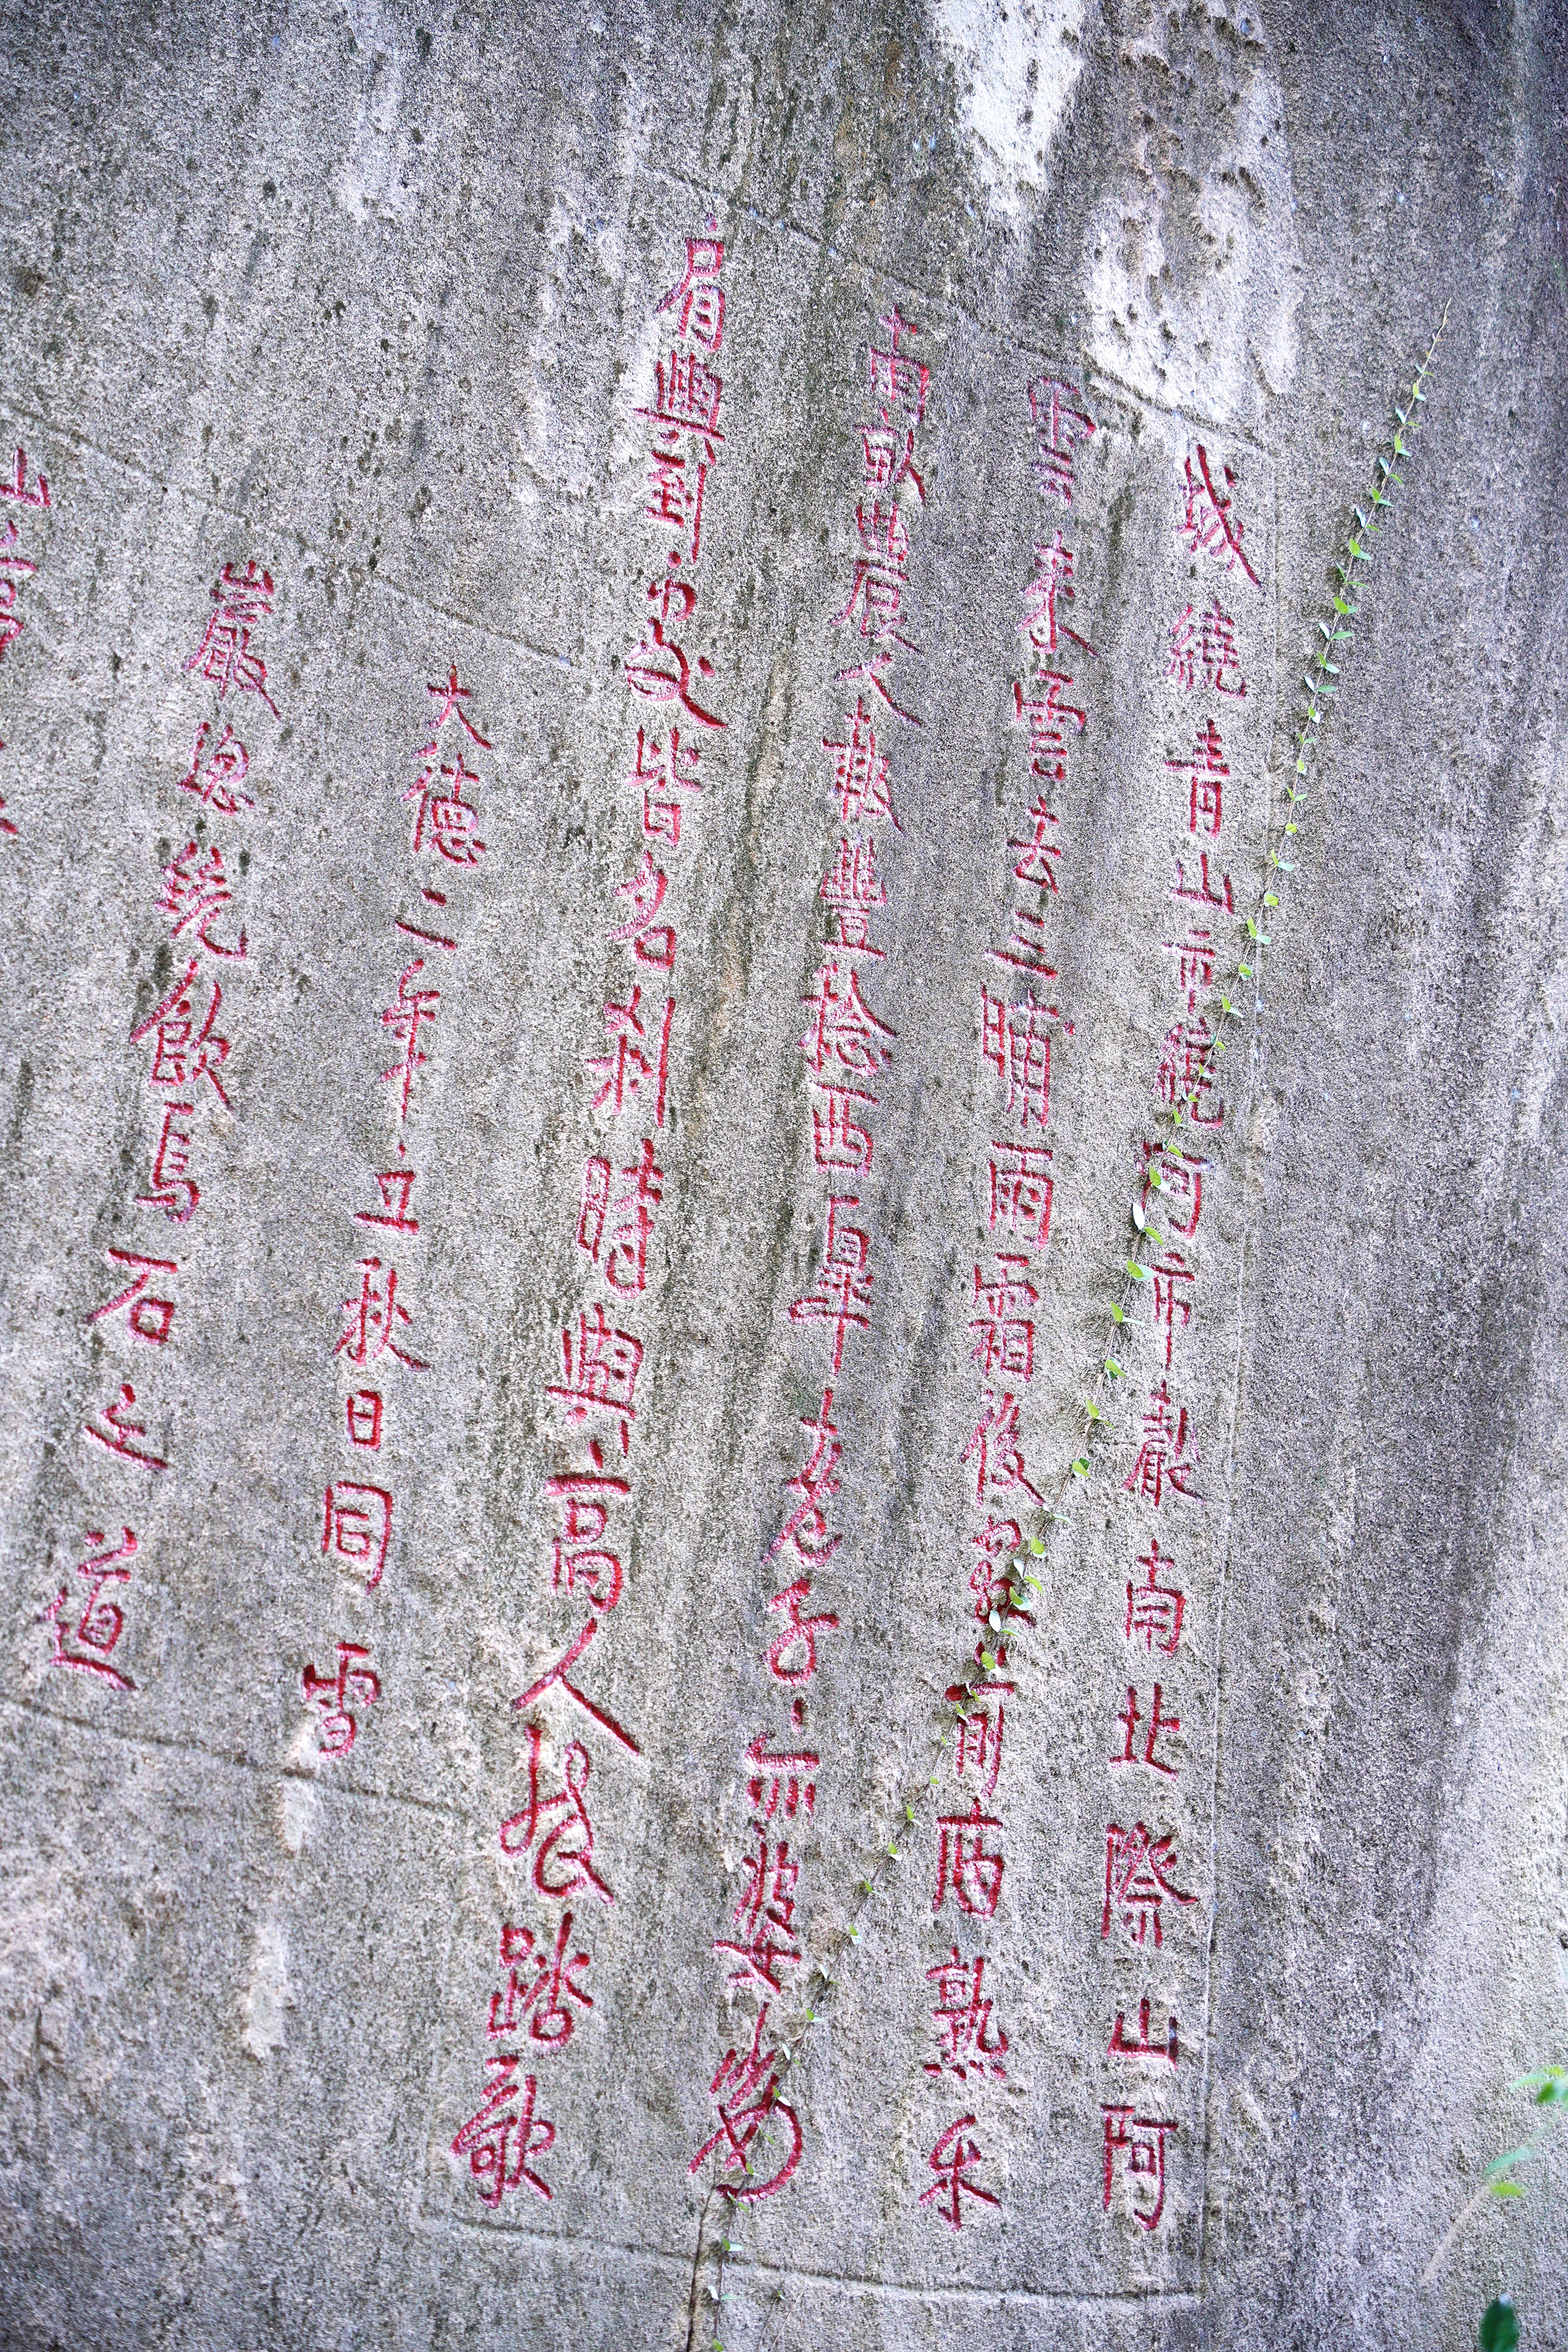 城繞青山市繞河市聲南北際山阿
雲來雲去三晴雨霜後前兩熟禾
南畝農人報豐稔西皋老子亦婆娑
肩輿到處皆名刹時與高人踏歌
大德二年立秋日同
巖飲馬石之道
山